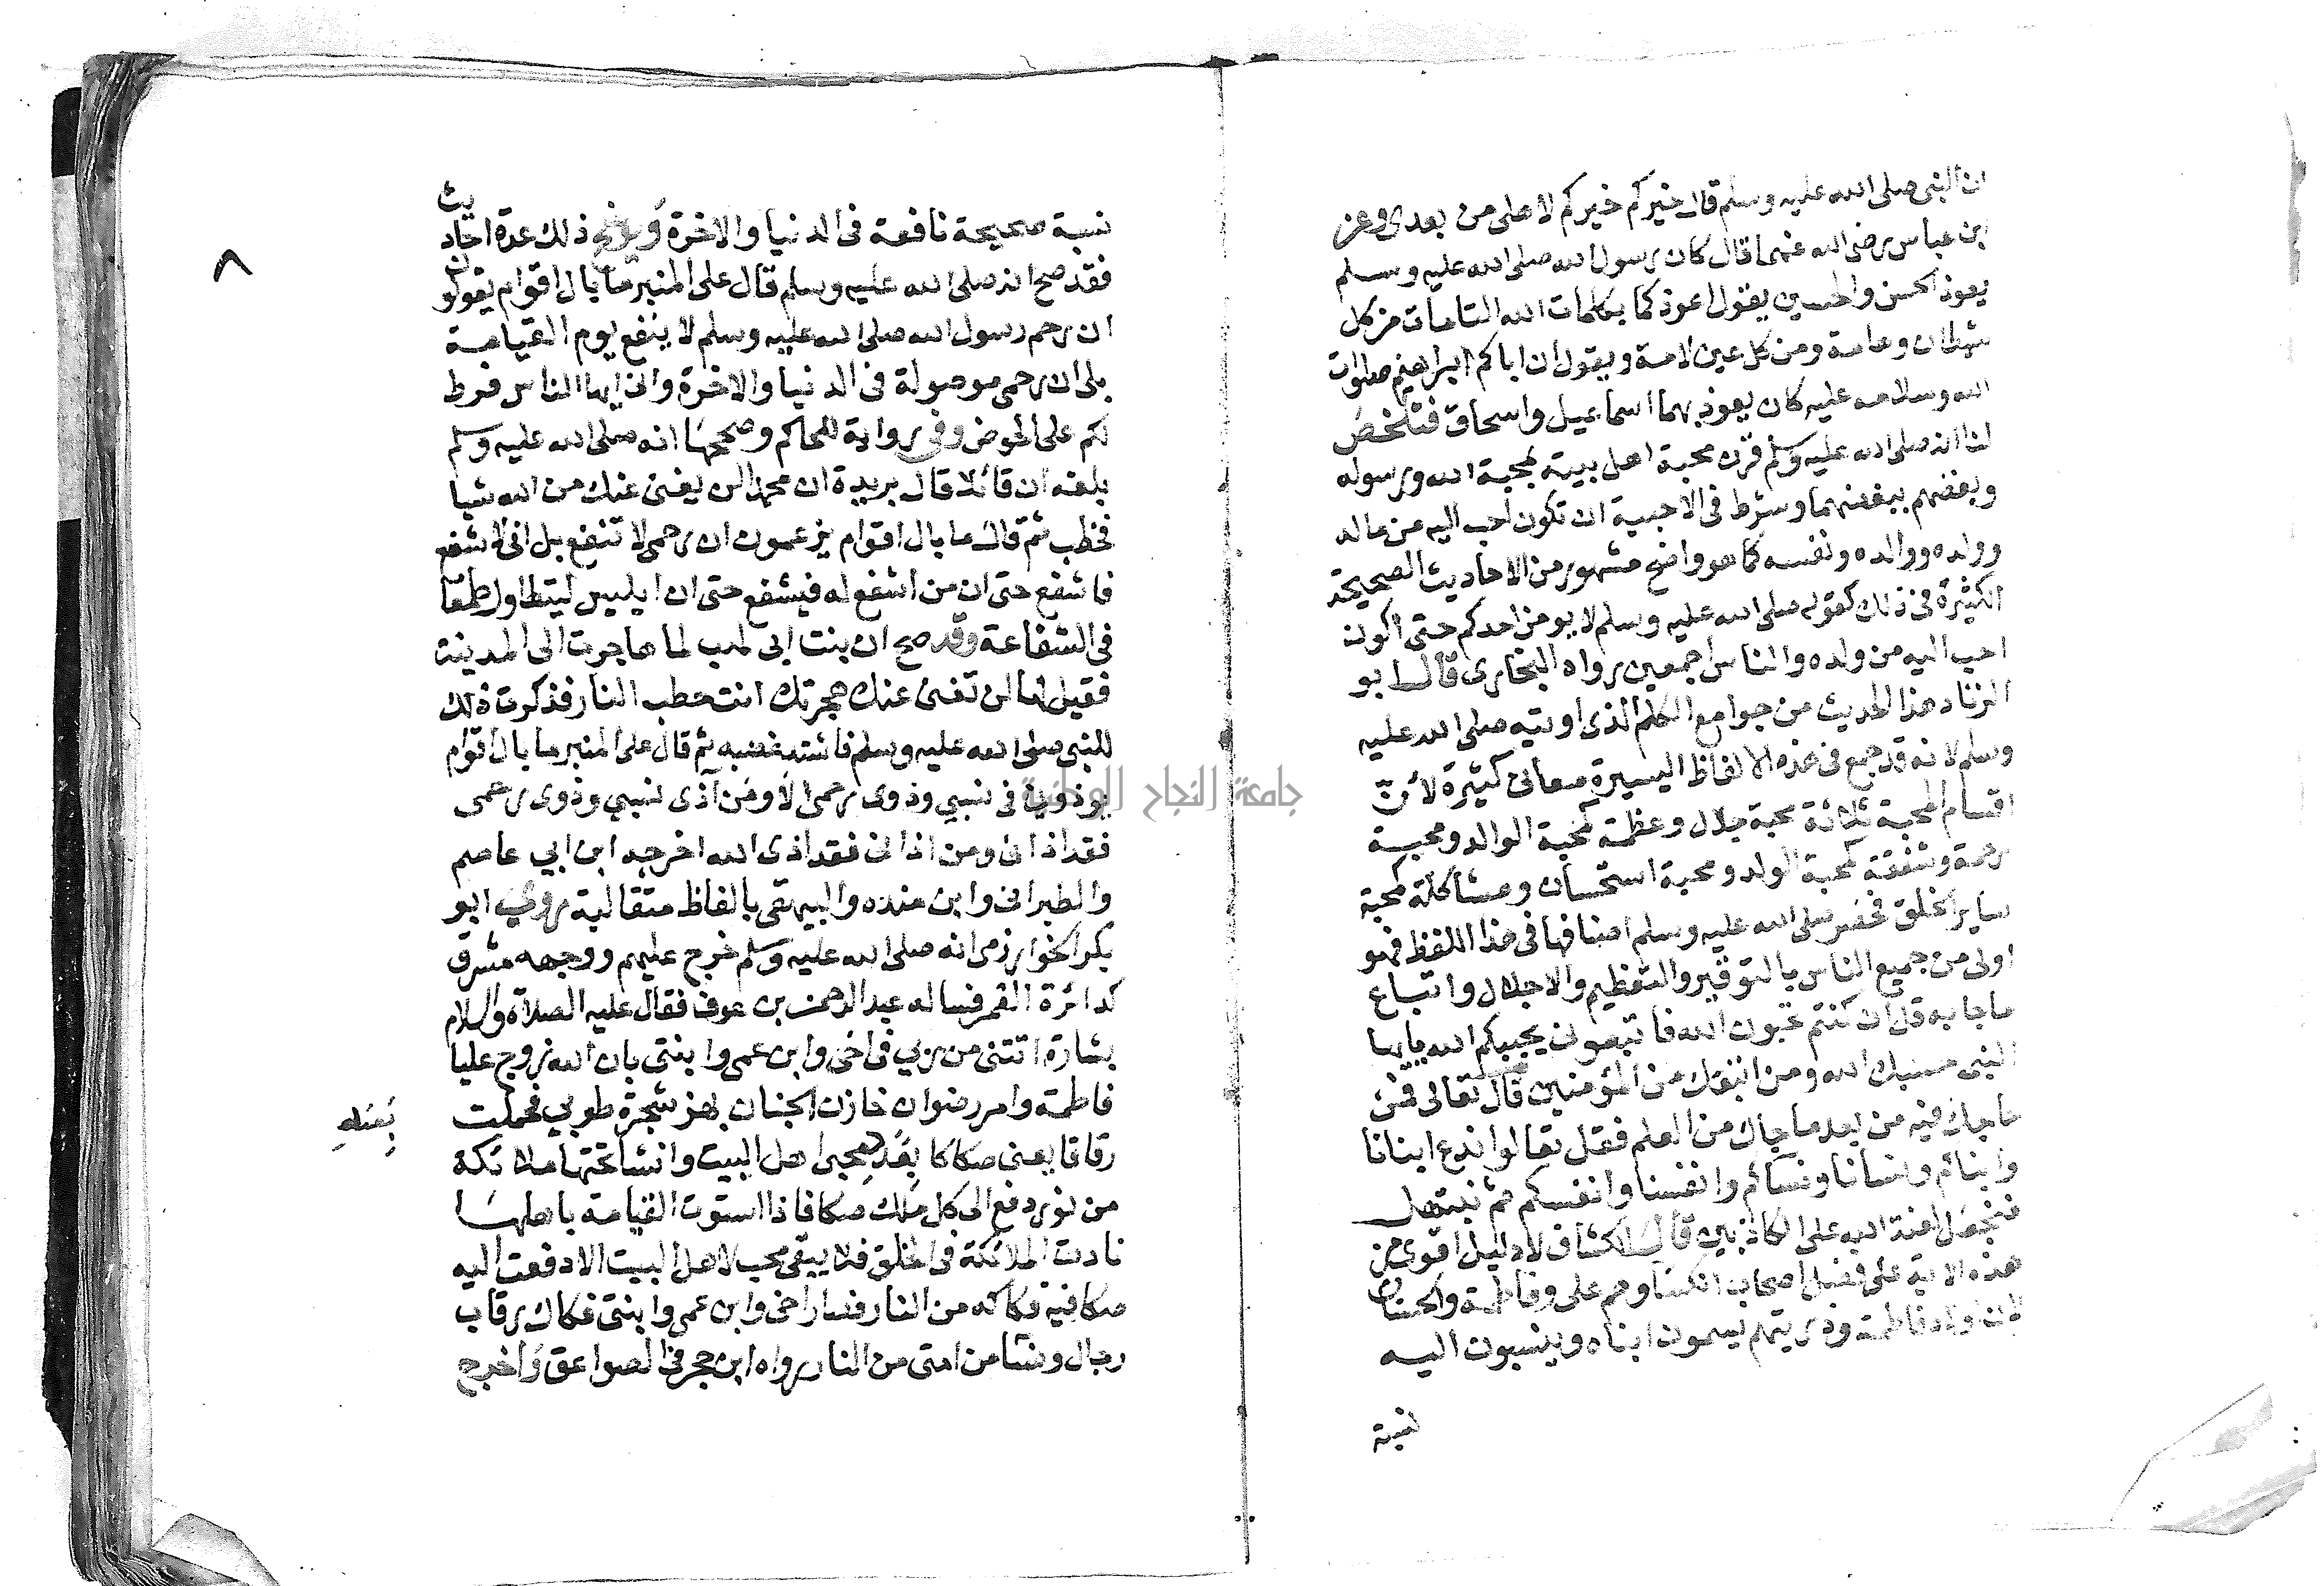 ان النبى صلى الله عليه وسلم قال خيركم خيركم لاهلى من بعدى وعن
ابن عباس رضى الله عنهما قال كان رسول الله صلى الله عليه وسلم
يعوذ الحسن والحسين يقول اعوذكما بكلمات الله التامات من كل
شيطان وهامة ومن كل عين لامة ويقول ان اباكم ابراهيم صلوات
الله وسلامه عليه كان يعوذ بهما اسماعيل واسحاق فتلخص
لنا انه صلى الله عليه وسلم قرن محبة اهل بيته بمحبة الله ورسوله
وبغضهم ببغضهما وشرط فى الاحبية ان تكون احب اليه من ماله
وولده ووالده ونفسه كما هو واضح مشهور من الاحاديث الصحيحة
الكثيرة فى ذلك كقوله صلى الله عليه وسلم لا يومن احدكم حتى اكون
احب اليه من ولده والناس اجمعين رواه البخارى قال ابو
الزناد هذا الحديث من جوامع الكلم الذى اوتيه صلى الله عليه
وسلم لانه قد جمع فى هذه الالفاظ اليسيرة معانى كثيرة لان
اقسام المحبة ثلاثة محبة جلال وعظمة كمحبة الوالد ومحبة
رحمة وشفقة كمحبة الولد ومحبة استحسان ومشاكلة كمحبة
ساير الخلق فحصر صلى الله عليه وسلم اصنافها فى هذا اللفظ فهو
اولى من جميع الناس بالتوقير والتعظيم والاجلال واتباع
ما جا به قل ان كنتم تحبون الله فاتبعونى يحببكم الله يا يها
النبى حسبك الله ومن اتبعك من المؤمنين قال تعالى فمن
حاجك فيه من بعد ما جاك من العلم فقل تعالوا ندع ابنانا
وابناكم ونسانا ونساكم وانفسنا وانفسكم ثم نبتهل
فنجعل لعنة الله على الكاذبين قال الكشاف لا دليل اقوى من
هذه الاية على فضل اصحاب الكسا وهم على وفاطمة والحسنان
لان اولاد فاطمة وذريتهم يسمون ابناه وينسبون اليه
نسبة
نسبة صحيحة نافعة فى الدنيا والاخرة ذلك عدة احاديث
فقد صح انه صلى الله عليه وسلم قال على المنبر ما بال اقوام يقولون
ان رحم رسول الله صلى الله عليه وسلم لا ينفع يوم القيامة
بلى ان رحمى موصولة فى الدنيا والاخرة وانى ايها الناس فرط
لكم على الحوض وفى رواية للحاكم وصححها انه صلى الله عليه وسلم
بلغه ان قائلا قال بريدة ان محمدا لن يغنى عنك من الله شيا
فخطب ثم قال ما بال اقوام يزعمون ان رحمى لا تنفع بل انى لاشفع
فاشفع حتى ان من اشفع له فيشفع حتى ان ابليس ليتطاول طمعا
فى الشفاعة وقد صح ان بنت ابى لهب لما هاجرت الى المدينة
فقيل لها لن تغنى عنك هجرتك انت حطب النار فذكرت ذلك
للنبى صلى الله عليه وسلم فاشتد غضبه ثم قال على المنبر ما بال اقوام
يوذونى فى نسبى وذوى رحمى الا ومن آذى نسبى وذوى رحمى
فقد اذانى ومن اذانى فقد اذى الله اخرجه ابن ابى عاصم
والطبرانى وابن منده والبيهقى بالفاظ متقاربة وروى ابو
بكر الخوارزمى انه صلى الله عليه وسلم خرج عليهم ووجهه مشرق
كدائرة القمر فساله عبد الرحمن بن عوف فقال عليه الصلاة والسلام
بشارة اتتنى من ربى فى اخى وابن عمى وابنتى بان الله زوج عليا
فاطمة وامر رضوان خازن الجنان بهز شجرة طوبى فحملت
رقاقا يعنى صكاكا بعدد محبى اهل البيت وانشا تحتها ملائكة
من نور دفع الى كل ملك صكا فاذا استوت القيامة باهلها
نادت الملائكة فى الخلق فلا يبقى محب لاهل البيت الا دفعت اليه
صكا فيه فكاكه من النار فصار اخى وابن عمى وابنتى فكاك رقاب
رجال ونسا من امتى من النار رواه ابن حجر فى الصواعق واخرج
٨
جامعة النجاح الوطنية